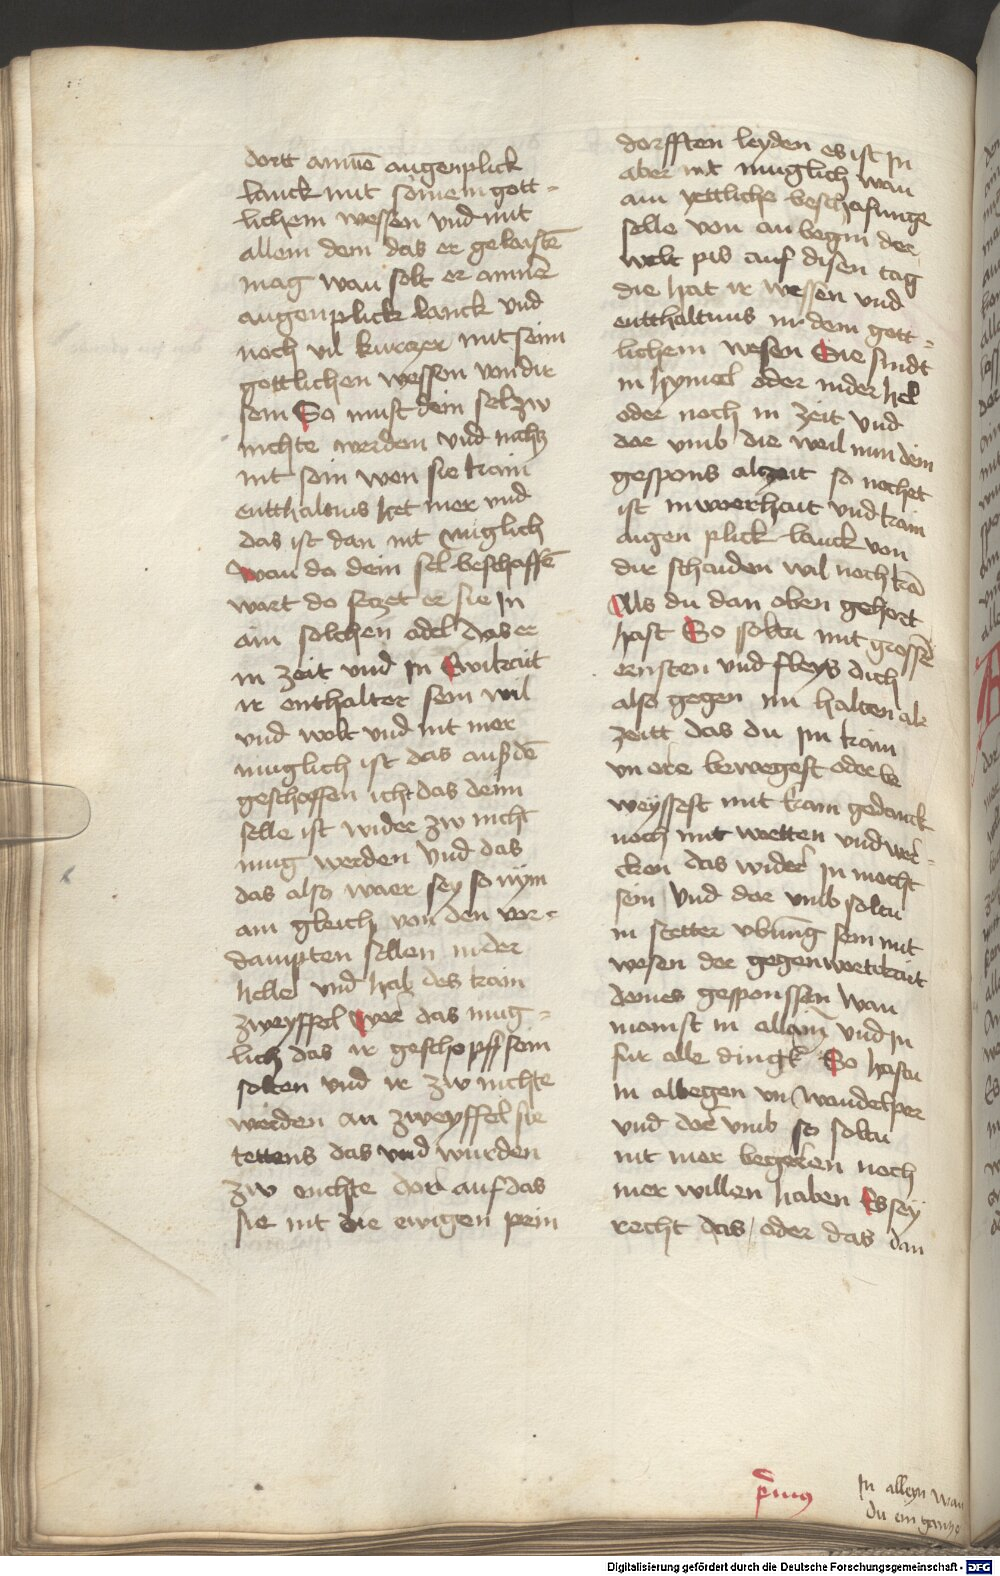 dortt ainnē augenplick
lanck mit seinem gott-
lichem wessen vnd mit
allem dem das er gelaistē
mag wan solt er ainnē
augenplick lanck vnd
noch vil kurczer mit seim
gottlichen wessen von dir
sein So must dein sel zw
nichte werden vnd nichtz
nit sein wen sie kain
entthaltnus het mer vnd
das ist dan nit muglich
wan da dein sel beschaffē
wart do seczet er sie in
ain solchen adel das er
in zeit vnd in Ewikait
ir enthalter sein wil
vnd wolt vnd nit mer
muglich ist das auß dē
geschaffen icht das deinn
selle ist wider zw nicht
mug werden Vnd das
das also waer sey so nym
ain gleich von den vor-
dampten sellen in der
helle vnd hab des kain
zweyffel wer das mug-
lich das ir geschopff sein
solten vnd ir zw nichte
werden an zweyffel sie
tettens das vnd wurden
zw enichte dor auf das
sie nit die ewigen pein
dorfften leyden es ist in
aber nit muglich wan
ain yettliche beschafunge
selle von an begin der
welt pis auf disen tag
die hat ir wessen vnd
entthaltnus in dem gott-
lichem wesen Sie sindt
in hymel oder in der hel
oder noch in zeit vnd
dor vmb die weil nun dein
gespons alzeit so nochet
ist in worhait vnd kain
augen plick lanck von
dir schaiden wil noch kā
Als du dan oben gehort
hast So soltu mit grossē
ernsten vnd fleys dich
also gegen im halten ale
zeitt das du im kain
vn ere bewegest oder be
weyssest mit kain gedanck
noch mit wortten vnd wer-
cken das wider in mocht
sein Vnd dor vmb soltu
in stetter vbung sein mit
wesen der gegenwertikait
deines gesponssen wan
mainst in allain vnd in
fur alle dingk So hastu
in albegen vn wandelper
vnd dor vmb so soltu
nit mer begeren noch
mer willen haben Es sey
recht das / oder das dan
In alleyn wan
du ein gancze